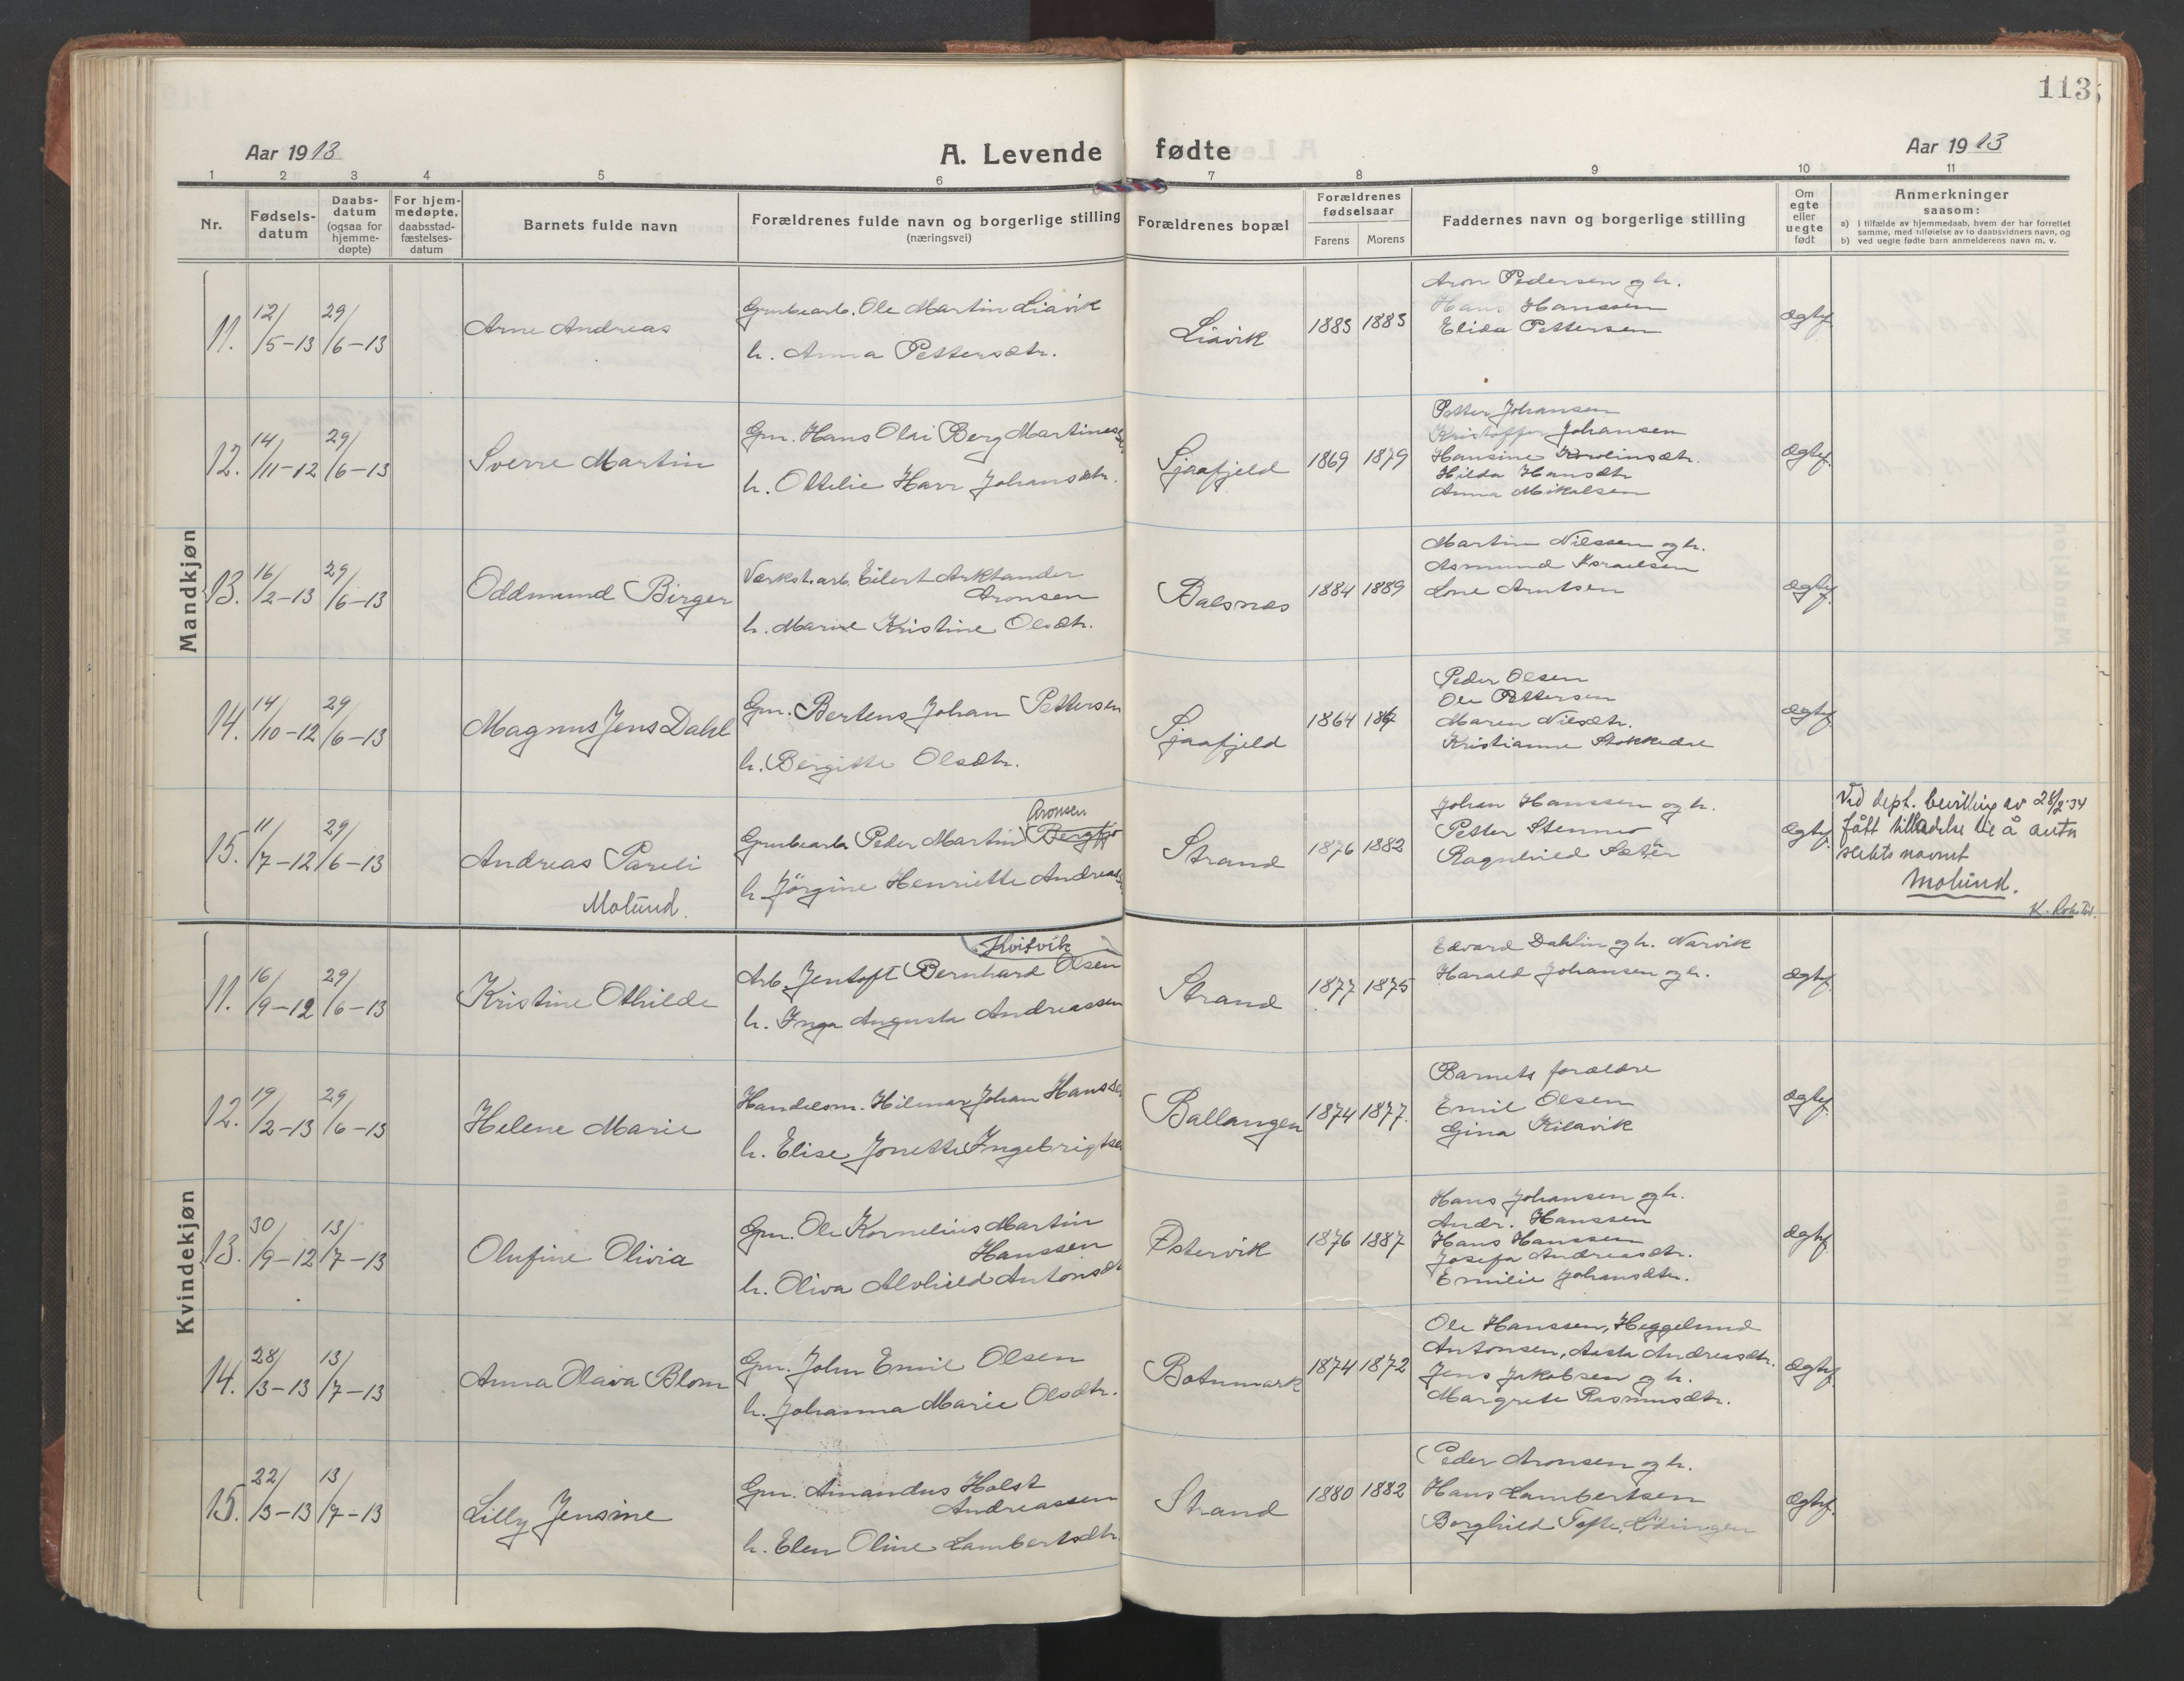 113
Aar 1913
A. Levende fødte
Aar 1913
1 2 3 4 5 6 7 8 9 10 11
Nr.
Fødsels-
datum
Daabs-
datum
(ogsaa for
hjemme-
døpte)
For hjem-
medøpte,
daabsstad-
fæstelses-
datum
Barnets fulde navn
Forældrenes fulde navn og borgerlige stilling
(næringsvei)
Forældrenes bopæl
Forældrenes
fødselsaar
Farens Morens
Faddernes navn og borgerlige stilling
Om
egte
eller
uegte
født
Anmerkninger
saasom:
a) i tilfælde av hjemmedaab, hvem der har forrettet
samme, med tilføielse av to daabsvidners navn, og
b) ved uegte fødte barn anmelderens navn m. v.
Mandkjøn
11. 12/5-13 29/6-13
Arne Andreas
Grubearb. Ole Martin Liavik
h. Anna Pettersdtr.
Liavik
1883 1883
Aron Pedersen og h.
Hans Hanssen
Elida Pettersen
Ægtef.
12. 14/11-12 29/6-13
Sverre Martin
Gm. Hans Olai Berg Martinesen
h. Ottilie Harr Johansdtr.
Sjaafjeld
1869 1879
Petter Johansen
Kristoffer Johansen
Hansine Karolinsdtr.
Hilda Hansdtr
Anna Mikalsen
Ægtef.
13. 16/2-13 29/6-13
Oddmund Birger
Værkst.arb. Eilert Arktander
Aronsen
h. Marie Kristine Olsdtr.
Balsnes
1884 1889
Martin Nilssen og h.
Asmund Israelsen
Lone Arntsen
Ægtef.
14. 14/10-12 29/6-13
Magnus Jens Dahl
Gm. Bertens Johan Pettersen
h. Bergitte Olsdtr.
Sjaafjeld
1864 1867
Peder Olsen
Ole Pettersen
Maren Nilsdtr.
Kristianne
Ægtef.
15. 11/7-12 29/6-13
Andreas Pareli
Molund.
Aronsen
Grubearb. Peder Martin Bergtjo
h. Jørgine Henriette Andreas
Strand
1876 1882
Johan Hanssen og h.
Petter Stenmo
Ragnhild Sæter
Ægtef.
Ved dept. bevilling av 28/2 34
fått tilladelse til å anta
slektsnavnet
Molund.
Kvindekjøn
11. 16/9-12 29/6-13
Kristine Othilde
Hvitvik
Arb. Jentoft Bernhard Olsen
h. Inga Augusta Andreassen
Strand
1877 1875
Edvard Dahlin og h. Narvik
Harald Johansen og h.
Ægtef.
12. 19/2-13 29/6-13
Helene Marie
Handelsm. Hilmar Johan Hanssen
h. Elise Jonette Ingebrigtsen
Ballangen
1874 1877.
Barnets forældre
Emil Olsen
Gina Kilavik
Ægtef.
13. 30/9-12 13/7-13
Olufine Olivia
Gm. Ole Kornelius Martin
Hanssen
h. Oliva Alvhild Antonsdt
Østervik
1876 1887
Hans Johansen og h.
Andr. Hanssen
Hans Hanssen
Josefa Andreasdtr.
Emilie Johansdtr.
Ægtef.
14. 28/3-13 13/7-13
Anna Olava Blom
Gm. John Emil Olsen
h. Johanna Marie Olsdtr.
Botnmark
1874 1872
Ole Hanssen, Heggelund
Antonsen, Aasta Andreasdtr.
Jens Jakobsen og h.
Margrete Rasmusdtr.
Ægtef.
15. 22/3-13 13/7-13
Lilly Jensine
Gm. Amandus Holst
Andreassen
h. Elen Oline Lambertsdtr.
Strand
1880 1882
Peder Aronsen og h.
Hans Lambertsen
Borghild Tofte, Lødingen
Ægtef.